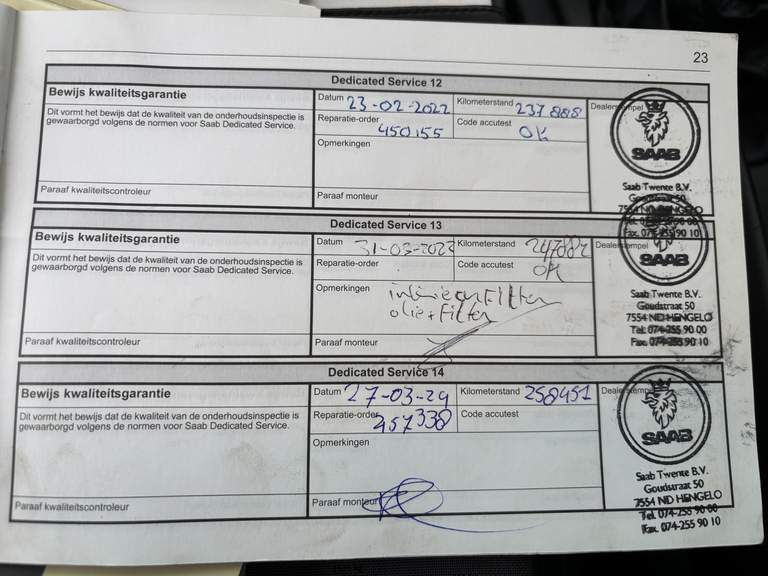 23
Dedicated Service 12
Bewijs kwaliteitsgarantie
Dit vormt het bewijs dat de kwaliteit van de onderhoudsinspectie is
gewaarborgd volgens de normen voor Saab Dedicated Service.
Paraaf kwaliteitscontroleur
Datum 23-02-2022
Kilometerstand 237888
Reparatie-order 450155
Code accutest OK
Opmerkingen
Paraaf monteur
Dealerstempel
SAAB
Saab Twente B.V.
Goudstraat 50
7554 ND HENGELO
Tel. 074-255 90 00
Fax. 074-255 90 10
Dedicated Service 13
Bewijs kwaliteitsgarantie
Dit vormt het bewijs dat de kwaliteit van de onderhoudsinspectie is
gewaarborgd volgens de normen voor Saab Dedicated Service.
Paraaf kwaliteitscontroleur
Datum 31-03-2023
Kilometerstand
Reparatie-order
Code accutest OK
Opmerkingen
interieurFilter
olie+Filter
Paraaf monteur
Dealerstempel
SAAB
Saab Twente B.V.
Goudstraat 50
7554 ND HENGELO
Tel. 074-255 90 00
Fax. 074-255 90 10
Dedicated Service 14
Bewijs kwaliteitsgarantie
Dit vormt het bewijs dat de kwaliteit van de onderhoudsinspectie is
gewaarborgd volgens de normen voor Saab Dedicated Service.
Paraaf kwaliteitscontroleur
Datum 27-03-24
Kilometerstand 258451
Reparatie-order 457338
Code accutest
Opmerkingen
Paraaf monteur
Dealerstempel
SAAB
Saab Twente B.V.
Goudstraat 50
7554 ND HENGELO
Tel. 074-255 90 00
Fax. 074-255 90 10